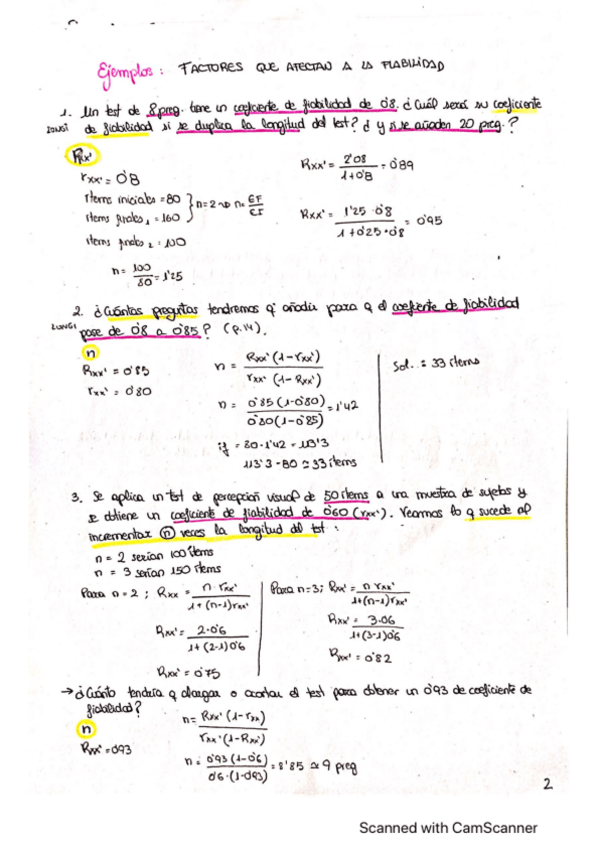 Ejemplos: FACTORES QUE AFECTAN A LA FIABILIDAD
1. Un test de 8 preg. tiene un coeficiente de fiabilidad de 0'8. ¿Cuál será su coeficiente
LONGI de fiabilidad si se duplica la longitud del test? ¿y si se añaden 20 preg.?
Rxx'
rxx' = 0'8
Items iniciales = 80
Items finales₁ = 160
} n = 2 → n = EF/EI
Items finales₂ = 100
n = 100/80 = 1'25
Rxx' = 2·0'8 / 1+0'8 = 0'89
Rxx' = 1'25 · 0'8 / 1 + 0'25 · 0'8 = 0'95
2. ¿Cuántas preguntas tendremos q' añadir para q el coeficiente de fiabilidad
LONGI pase de 0'8 a 0'85? (P.14).
n
Rxx' = 0'85
rxx' = 0'80
n = Rxx' (1-rxx') / rxx' (1-Rxx')
n = 0'85 (1-0'80) / 0'80 (1-0'85) = 1'42
if = 80 · 1'42 = 113'3
113'3 - 80 ≃ 33 items
Sol. = 33 items
3. Se aplica un test de percepción visual de 50 items a una muestra de sujetos y
se obtiene un coeficiente de fiabilidad de 0'60 (rxx'). Veamos lo q sucede al
incrementar n veces la longitud del tst:
n = 2 serían 100 items
n = 3 serían 150 items
Para n = 2; Rxx = n · rxx' / 1+(n-1)rxx'
Rxx' = 2·0'6 / 1+(2-1)0'6
Rxx' = 0'75
Para n=3; Rxx' = n rxx' / 1+(n-1)rxx'
Rxx' = 3·06 / 1+(3-1)0'6
Rxx' = 0'82
→ ¿Cuánto tendría q alargar o acortar el test para obtener un 0'93 de coeficiente de
fiabilidad?
n
Rxx' = 093
n = Rxx' (1-rxx) / rxx' · (1-Rxx')
n = 0'93 (1-0'6) / 0'6 · (1-093) = 8'85 ≃ 9 preg
2
Scanned with CamScanner